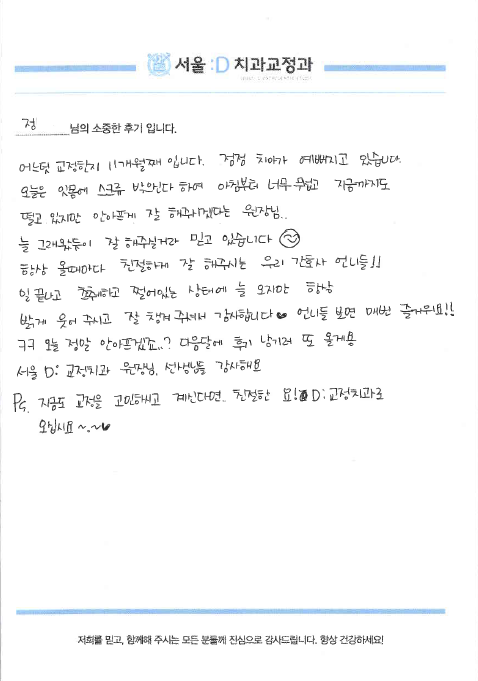 서울 :D 치과교정과
정 님의 소중한 후기 입니다.
어느덧 교정한지 11개월째 입니다. 점점 치아가 예뻐지고 있습니다.
오늘은 잇몸에 스크류 박으신다 하여 아침부터 너무 무섭고 지금까지도
떨고 있지만 안아프게 잘 해주시겠다는 원장님..
늘 그래왔듯이 잘 해주실거라 믿고 있습니다 😊
항상 올때마다 친절하게 잘 해주시는 우리 간호사 언니들!!
일 끝나고 쩔어있는 상태에 늘 오지만 항상
밝게 웃어 주시고 잘 챙겨 주셔서 감사합니다♥ 언니들 보면 매번 즐거워요!!
ㅋㅋ 오늘 정말 안아프겠죠..? 다음달에 후기 남기러 또 올게용
서울 D: 교정치과 원장님, 선생님들 감사해요
PS. 지금도 교정을 고민하시고 계신다면.. 친절한 요! D:교정치과로
오십시요~.~♥
저희를 믿고, 함께해 주시는 모든 분들께 진심으로 감사드립니다. 항상 건강하세요!